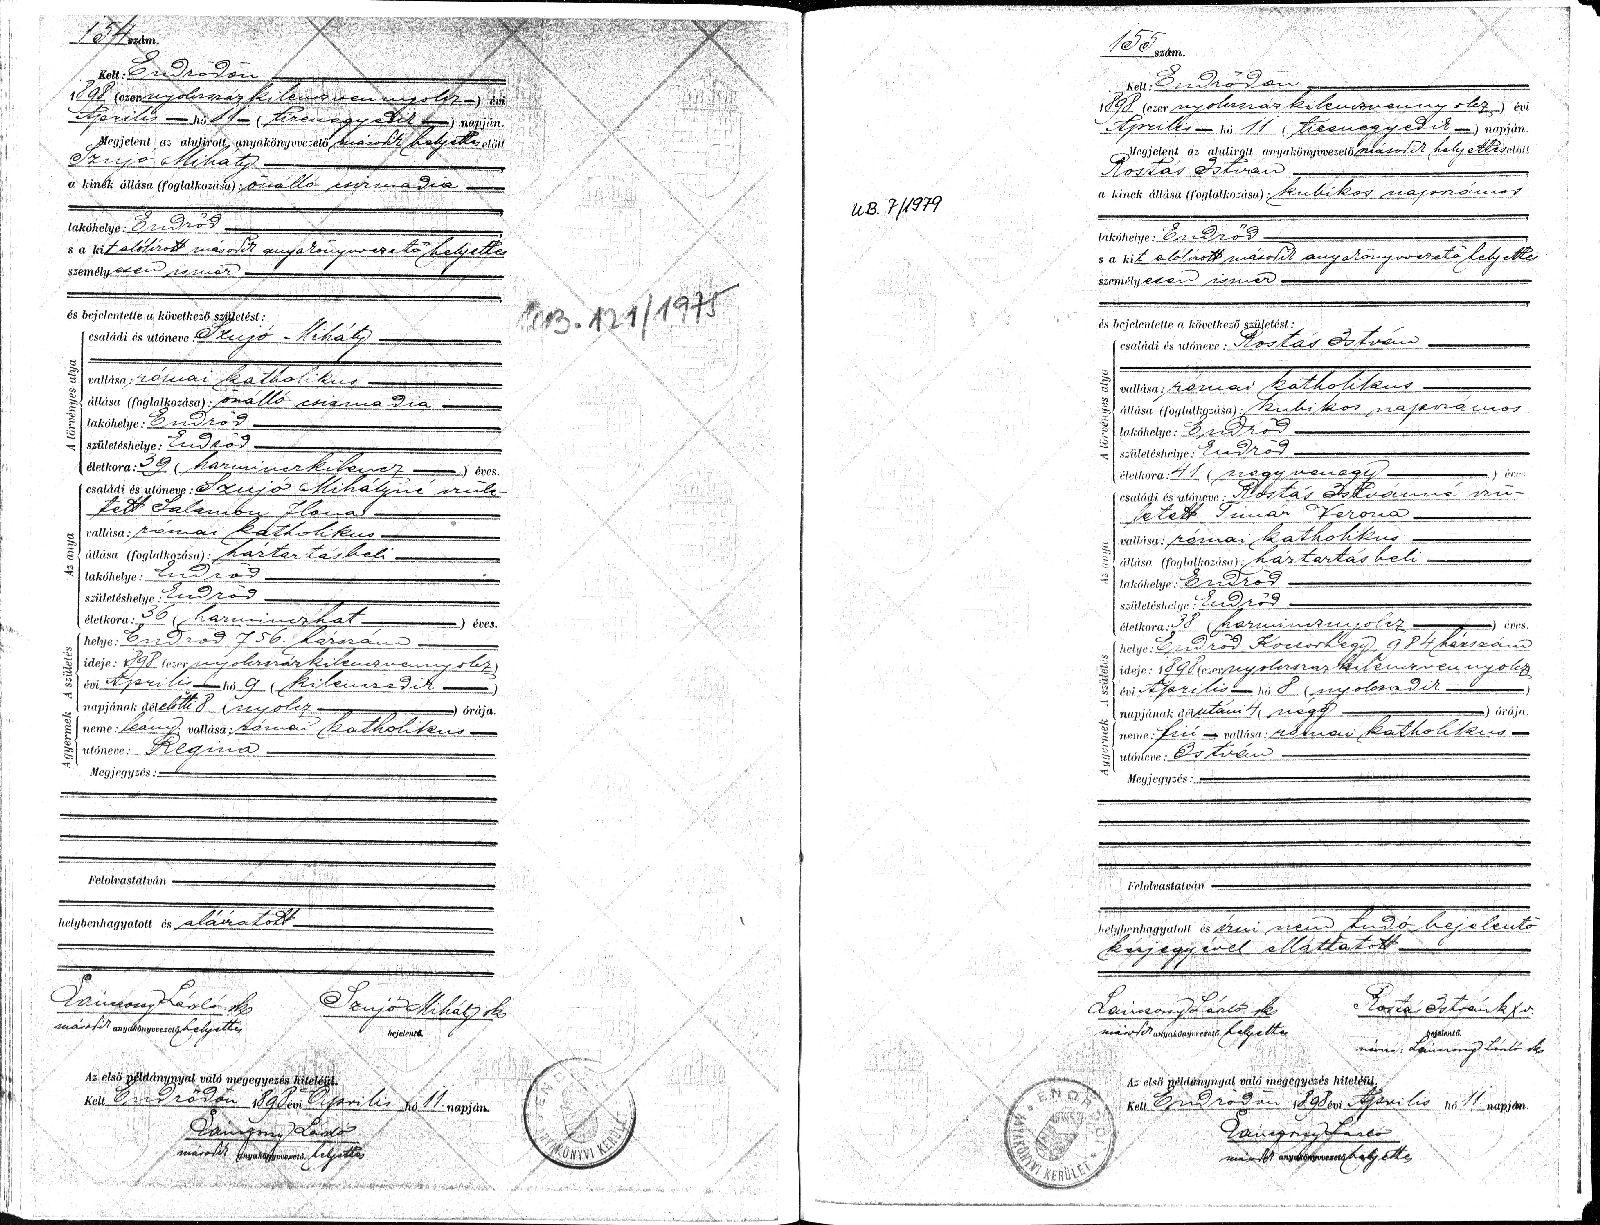 154 szám.
Kelt: Endrődön
1898 (ezer nyolcszázkilencvennyolcz) évi
Április hó 11 (tizenegyedik) napján.
Megjelent az alulirott anyakönyvvezető második helyettes előtt
Szujó Mihály
a kinek állása (foglalkozása): önálló csizmadia
lakóhelye: Endrőd
s a kit alólirott második anyakönyvvezető helyettes
személyesen ismer
és bejelentette a következő születést:
A törvényes atya
családi és utóneve Szujó Mihály
vallása: római katholikus
állása (foglalkozása): önálló csizmadia
lakóhelye: Endrőd
születéshelye: Endrőd
életkora: 39 (harminczkilencz) éves.
Az anya
családi és utóneve: Szujó Mihályné szüle-
tett Salamon Ilona
vallása: római katholikus
állása (foglalkozása): háztartásbeli
lakóhelye: Endrőd
születéshelye: Endrőd
életkora: 36 (harminczhat) éves.
A születés
helye: Endrőd 756. házszám
ideje: 1898 (ezer nyolcszázkilenczvennyolcz)
évi Április hó 9 (kilenczedik)
napjának délelőtti 8 (nyolcz) órája.
A gyermek
neme: leány vallása: római katholikus
utóneve: Regina
Megjegyzés:
Felolvastatván
helybenhagyatott és aláiratott
Szujó Mihály sk
második anyakönyvvezető helyettes
bejelentő.
Az első példánynyal való megegyezés hiteléül.
Kelt Endrődön 1898 évi Április hó 11 napján.
második anyakönyvvezető helyettes
121/1975
155 szám.
Kelt: Endrődön
1898 (ezer nyolcszázkilenczvennyolcz) évi
Április hó 11 (tizenegyedik) napján.
Megjelent az alulirott anyakönyvvezető második helyettes előtt
Rostás István
a kinek állása (foglalkozása): kubikos napszámos
lakóhelye: Endrőd
s a kit alólirott második anyakönyvvezető helyettes
személyesen ismer
és bejelentette a következő születést:
A törvényes atya
családi és utóneve: Rostás István
vallása: római katholikus
állása (foglalkozása): kubikos napszámos
lakóhelye: Endrőd
születéshelye: Endrőd
életkora: 41 (negyvenegy) éves
Az anya
családi és utóneve: Rostás Istvánné szü-
letett Timár Verona
vallása: római katholikus
állása (foglalkozása): háztartásbeli
lakóhelye: Endrőd
születéshelye: Endrőd
életkora: 38 (harmincznyolcz) éves.
A születés
helye: Endrőd Kocsorhegy 984 házszám
ideje: 1898 (ezer nyolcszázkilenczvennyolcz
évi Április hó 8 (nyolczadik)
napjának délutáni 4 (négy) órája.
A gyermek
neme: fiú vallása: római katholikus
utóneve: István
Megjegyzés:
Felolvastatván
helybenhagyatott és irni nem tudó bejelentő
kézjegyével elláttatott
Rostás István k x v.
második anyakönyvvezető helyettes
bejelentő.
Az első példánynyal való megegyezés hiteléül.
Kelt Endrődön 1898 évi Április hó 11 napján.
második anyakönyvvezető helyettes
UB. 7/1979
ENDRŐDI ANYAKÖNYVI KERÜLET